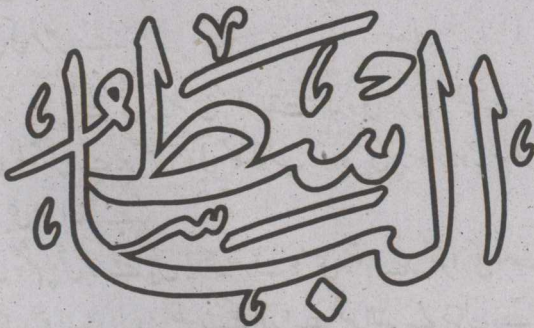 الباسط